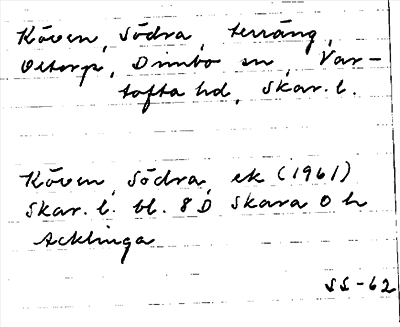 Köven, Södra, terräng,
Ottorp, Dimbo sn, Var-
tofta hd, Skar. l.
Köven, Södra, ek (1961)
Skar. l. bl. 8 D Skara 0 h
Acklinga
SS-62